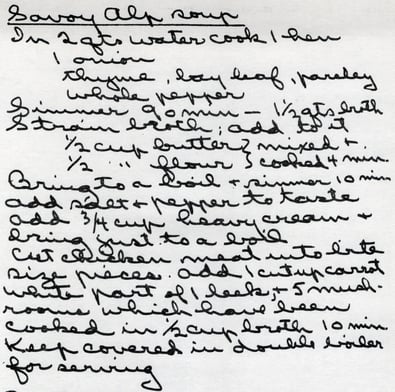 Savoy Alp soup
In 2 qts water cook 1 hen
1 onion
thyme, bay leaf, parsley
whole pepper
Simmer 90 min — 1 1/2 qts broth
Strain broth; add to it
1/2 cup butter } mixed +
1/2 " flour } cooked 4 min.
Bring to a boil + simmer 10 min
add salt + pepper to taste
add 3/4 cup heavy cream +
bring just to a boil
Cut chicken meat into bite
size pieces. add 1 cut up carrot
white part of 1 leek, + 5 mush-
rooms which have been
cooked in 1/2 cup broth 10 min
Keep covered in double boiler
for serving